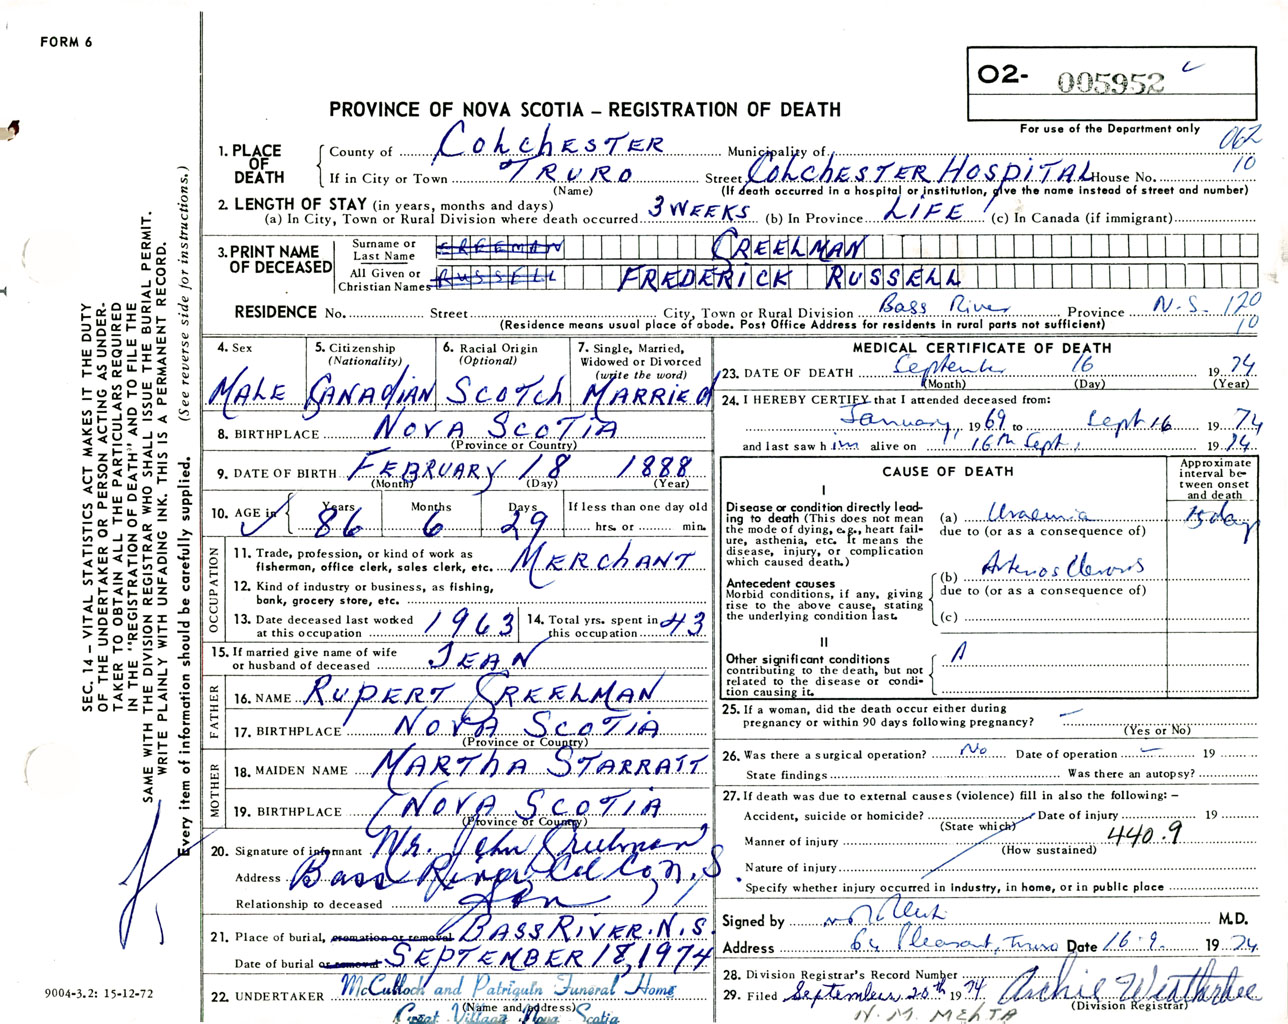 FORM 6
O2- 005952
PROVINCE OF NOVA SCOTIA – REGISTRATION OF DEATH
For use of the Department only
062
10
1. PLACE OF DEATH
County of COLCHESTER Municipality of
If in City or Town TRURO Street COLCHESTER HOSPITAL House No.
(Name) (If death occurred in a hospital or institution, give the name instead of street and number)
2. LENGTH OF STAY (in years, months and days)
(a) In City, Town or Rural Division where death occurred 3 WEEKS (b) In Province LIFE (c) In Canada (if immigrant)
3. PRINT NAME OF DECEASED
Surname or Last Name FREEMAN CREELMAN
All Given or Christian Names RUSSELL FREDERICK RUSSELL
RESIDENCE No. Street City, Town or Rural Division Bass River Province N.S. 120
(Residence means usual place of abode. Post Office Address for residents in rural parts not sufficient) 10
4. Sex MALE
5. Citizenship (Nationality) CANADIAN
6. Racial Origin (Optional) SCOTCH
7. Single, Married, Widowed or Divorced (write the word) MARRIED
8. BIRTHPLACE NOVA SCOTIA
(Province or Country)
9. DATE OF BIRTH FEBRUARY 18 1888
(Month) (Day) (Year)
10. AGE in Years 86 Months 6 Days 29 If less than one day old hrs. or min.
OCCUPATION
11. Trade, profession, or kind of work as fisherman, office clerk, sales clerk, etc. MERCHANT
12. Kind of industry or business, as fishing, bank, grocery store, etc.
13. Date deceased last worked at this occupation 1963
14. Total yrs. spent in this occupation 43
15. If married give name of wife or husband of deceased JEAN
FATHER
16. NAME RUPERT CREELMAN
17. BIRTHPLACE NOVA SCOTIA
(Province or Country)
MOTHER
18. MAIDEN NAME MARTHA STARRATT
19. BIRTHPLACE NOVA SCOTIA
(Province or Country)
20. Signature of informant Mr. John Creelman
Address Bass River Col Co, N.S.
Relationship to deceased Son
21. Place of burial, cremation or removal BASS RIVER. N.S.
Date of burial or removal SEPTEMBER 18, 1974
22. UNDERTAKER McCulloch and Patriquin Funeral Home
(Name and address)
Great Village Nova Scotia
MEDICAL CERTIFICATE OF DEATH
23. DATE OF DEATH September 16 1974
(Month) (Day) (Year)
24. I HEREBY CERTIFY that I attended deceased from:
January 1969 to Sept 16 1974
and last saw him alive on 16th Sept, 1974
CAUSE OF DEATH
Approximate interval between onset and death
I
Disease or condition directly leading to death (This does not mean the mode of dying, e.g., heart failure, asthenia, etc. It means the disease, injury, or complication which caused death.)
(a) Uraemia 15 days
due to (or as a consequence of)
Antecedent causes
Morbid conditions, if any, giving rise to the above cause, stating the underlying condition last.
(b) Arteriosclerosis
due to (or as a consequence of)
(c)
II
Other significant conditions contributing to the death, but not related to the disease or condition causing it.
25. If a woman, did the death occur either during pregnancy or within 90 days following pregnancy? –
(Yes or No)
26. Was there a surgical operation? No Date of operation – 19
State findings Was there an autopsy?
27. If death was due to external causes (violence) fill in also the following: –
Accident, suicide or homicide? Date of injury 19
(State which)
Manner of injury 440.9
(How sustained)
Nature of injury
Specify whether injury occurred in industry, in home, or in public place
Signed by M.D.
Address 64 Pleasant, Truro Date 16.9. 1974
28. Division Registrar's Record Number
29. Filed September 20th 1974 Archie Weatherbee
(Division Registrar)
N. M. MEHTA
SEC. 14 – VITAL STATISTICS ACT MAKES IT THE DUTY
OF THE UNDERTAKER OR PERSON ACTING AS UNDER-
TAKER TO OBTAIN ALL THE PARTICULARS REQUIRED
IN THE "REGISTRATION OF DEATH" AND TO FILE THE
SAME WITH THE DIVISION REGISTRAR WHO SHALL ISSUE THE BURIAL PERMIT.
WRITE PLAINLY WITH UNFADING INK. THIS IS A PERMANENT RECORD.
Every item of information should be carefully supplied. (See reverse side for instructions.)
9004-3.2: 15-12-72